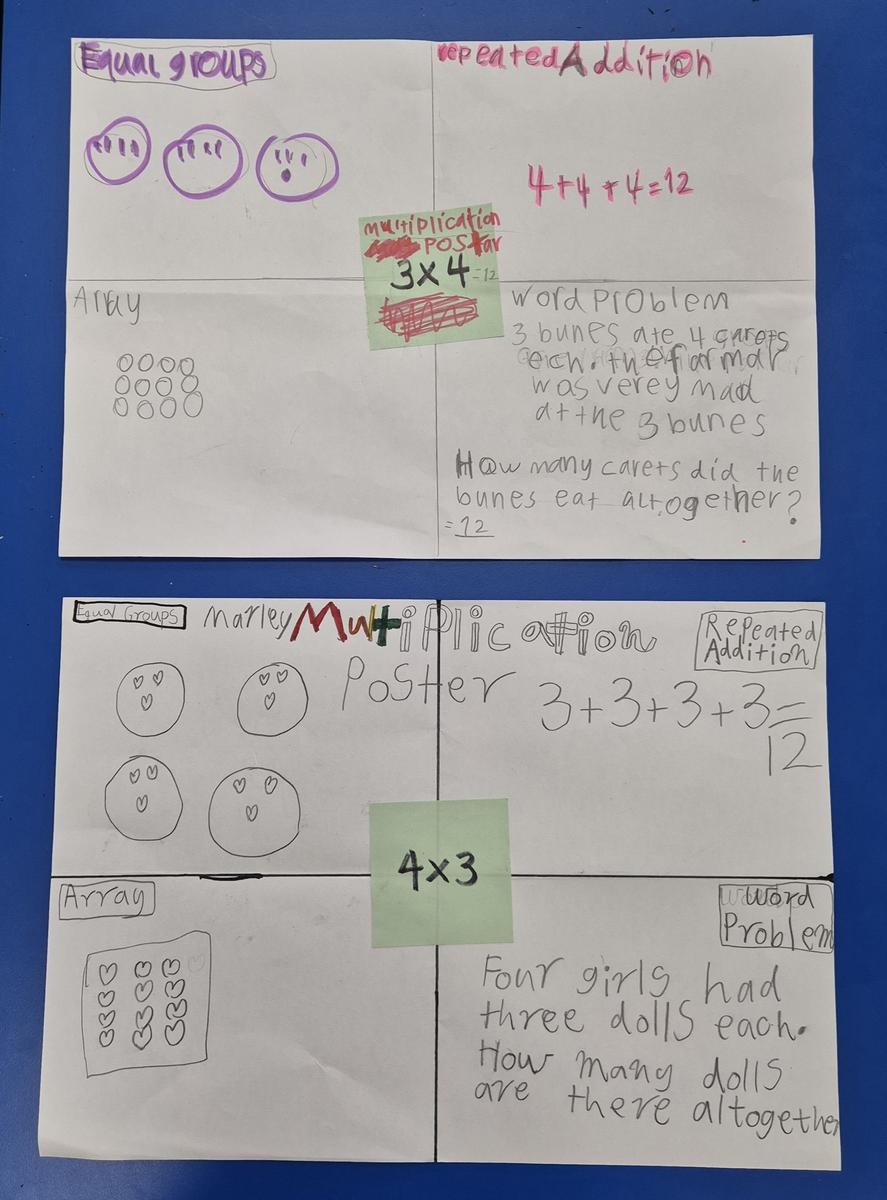 Equal groups
repeated Addition
4+4+4=12
multiplication
POStar
3×4=12
Array
word problem
3 bunes ate 4 carets
ech. the farmar
was verey mad
at the 3 bunes
How many carets did the
bunes eat altogether?
=12
Equal Groups
Marley Multiplication
Poster
Repeated
Addition
3+3+3+3=
12
4×3
Array
Word
Problem
Four girls had
three dolls each.
How many dolls
are there altogether